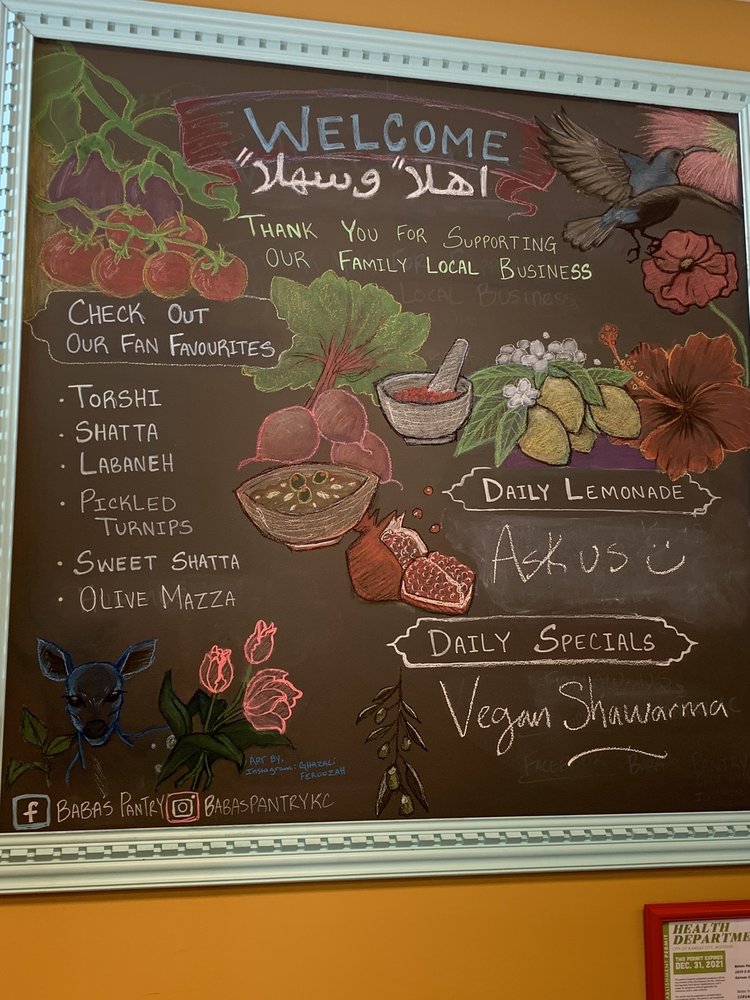 WELCOME
اهلاً وسهلاً
THANK YOU FOR SUPPORTING
OUR FAMILY LOCAL BUSINESS
LOCAL BUSINESS
CHECK OUT
OUR FAN FAVOURITES
· TORSHI
· SHATTA
· LABANEH
· PICKLED
TURNIPS
· SWEET SHATTA
· OLIVE MAZZA
DAILY LEMONADE
Ask us
DAILY SPECIALS
Vegan Shawarma
ART BY,
Instagram: GHAZALI
FEROOZAH
f BABAS PANTRY BABASPANTRYKC
HEALTH
DEPARTME
CITY OF KANSAS CITY, MISSOURI
THIS PERMIT EXPIRES
DEC. 31, 2021